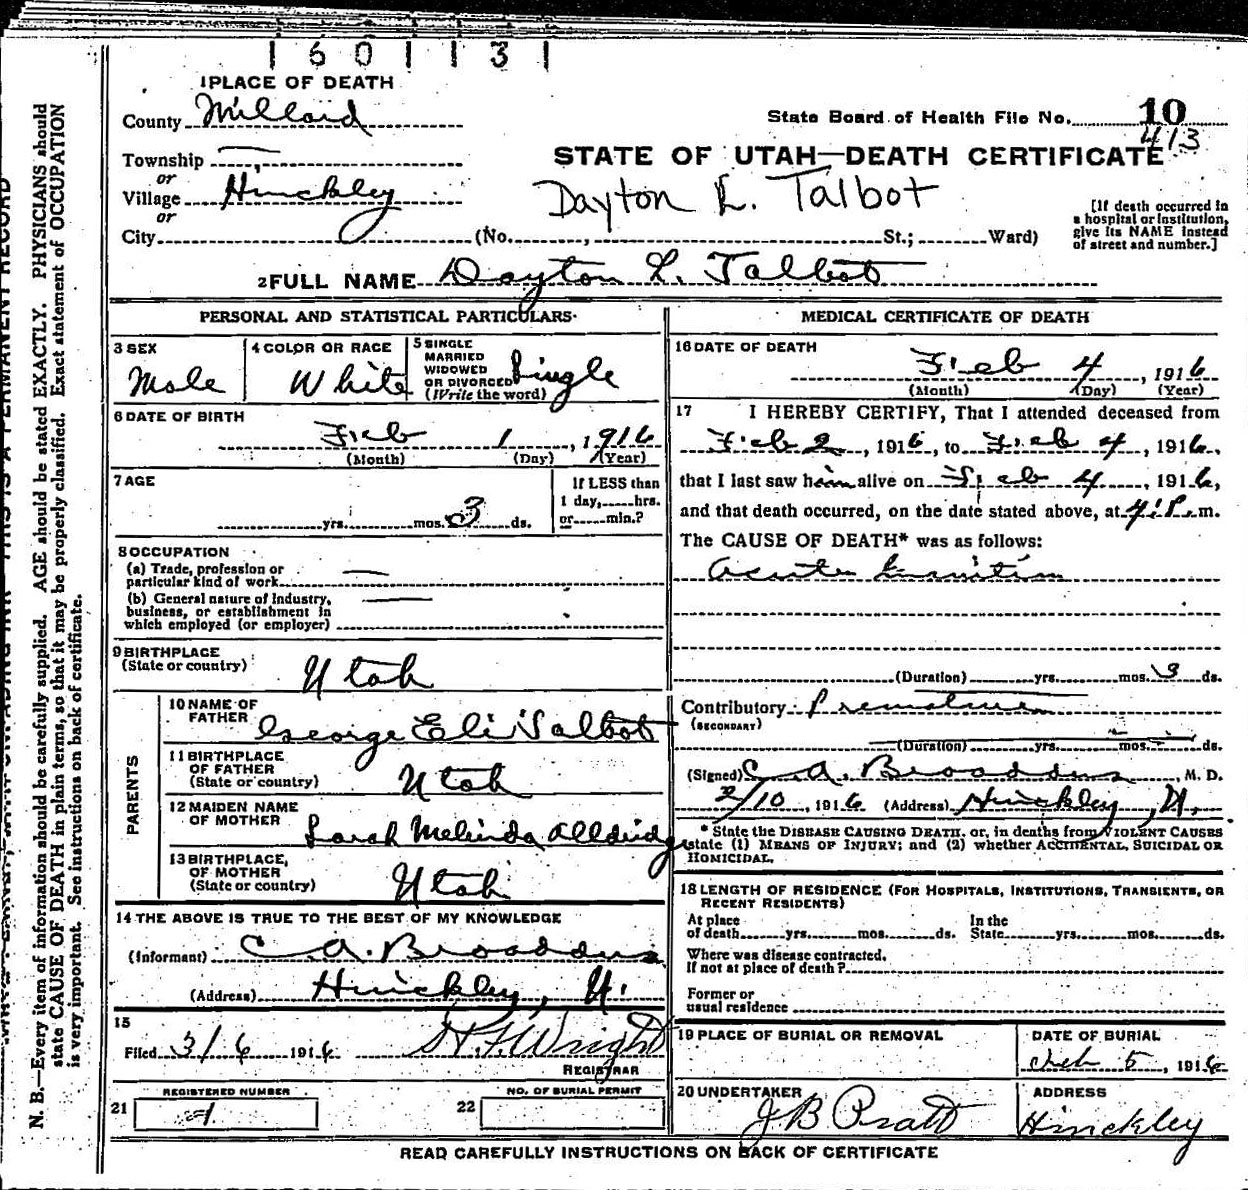 1 6 0 1 1 3 1
1 PLACE OF DEATH
County Millard
State Board of Health File No. 10
413
Township —
or
Village Hinckley
or
City (No. , St.; Ward)
STATE OF UTAH—DEATH CERTIFICATE
Dayton L. Talbot
[If death occurred in
a hospital or institution,
give its NAME instead
of street and number.]
2 FULL NAME Dayton L. Talbot
PERSONAL AND STATISTICAL PARTICULARS
3 SEX
Male
4 COLOR OR RACE
White
5 SINGLE
MARRIED
WIDOWED
OR DIVORCED
(Write the word)
Single
6 DATE OF BIRTH
Feb 1, 1916
(Month) (Day) (Year)
7 AGE
yrs. mos. 3 ds.
If LESS than
1 day, hrs.
or min.?
8 OCCUPATION
(a) Trade, profession or
particular kind of work —
(b) General nature of Industry,
business, or establishment in
which employed (or employer) —
9 BIRTHPLACE
(State or country)
Utah
PARENTS
10 NAME OF
FATHER
George Eli Talbot
11 BIRTHPLACE
OF FATHER
(State or country)
Utah
12 MAIDEN NAME
OF MOTHER
Sarah Melinda Alldridge
13 BIRTHPLACE,
OF MOTHER
(State or country)
Utah
14 THE ABOVE IS TRUE TO THE BEST OF MY KNOWLEDGE
(Informant) C. A. Broaddus
(Address) Hinckley, U.
15
Filed 3/6 1916
REGISTRAR
H. F. Wright
REGISTERED NUMBER
21 1
NO. OF BURIAL PERMIT
22
MEDICAL CERTIFICATE OF DEATH
16 DATE OF DEATH
Feb 4, 1916
(Month) (Day) (Year)
17 I HEREBY CERTIFY, That I attended deceased from
Feb 2, 1916, to Feb 4, 1916,
that I last saw him alive on Feb 4, 1916,
and that death occurred, on the date stated above, at 4: P. m.
The CAUSE OF DEATH* was as follows:
Acute
(Duration) yrs. mos. 3 ds.
Contributory
(SECONDARY)
(Duration) yrs. mos. ds.
(Signed) C. A. Broaddus, M. D.
2/10, 1916 (Address) Hinckley, U.
* State the DISEASE CAUSING DEATH, or, in deaths from VIOLENT CAUSES
state (1) MEANS OF INJURY; and (2) whether ACCIDENTAL, SUICIDAL OR
HOMICIDAL.
18 LENGTH OF RESIDENCE (FOR HOSPITALS, INSTITUTIONS, TRANSIENTS, OR
RECENT RESIDENTS)
At place
of death yrs. mos. ds.
In the
State yrs. mos. ds.
Where was disease contracted,
If not at place of death?
Former or
usual residence
19 PLACE OF BURIAL OR REMOVAL
DATE OF BURIAL
Feb 5, 1916
20 UNDERTAKER
J B Pratt
ADDRESS
Hinckley
READ CAREFULLY INSTRUCTIONS ON BACK OF CERTIFICATE
N. B.—Every item of information should be carefully supplied. AGE should be stated EXACTLY. PHYSICIANS should
state CAUSE OF DEATH in plain terms, so that it may be properly classified. Exact statement of OCCUPATION
is very important. See instructions on back of certificate.